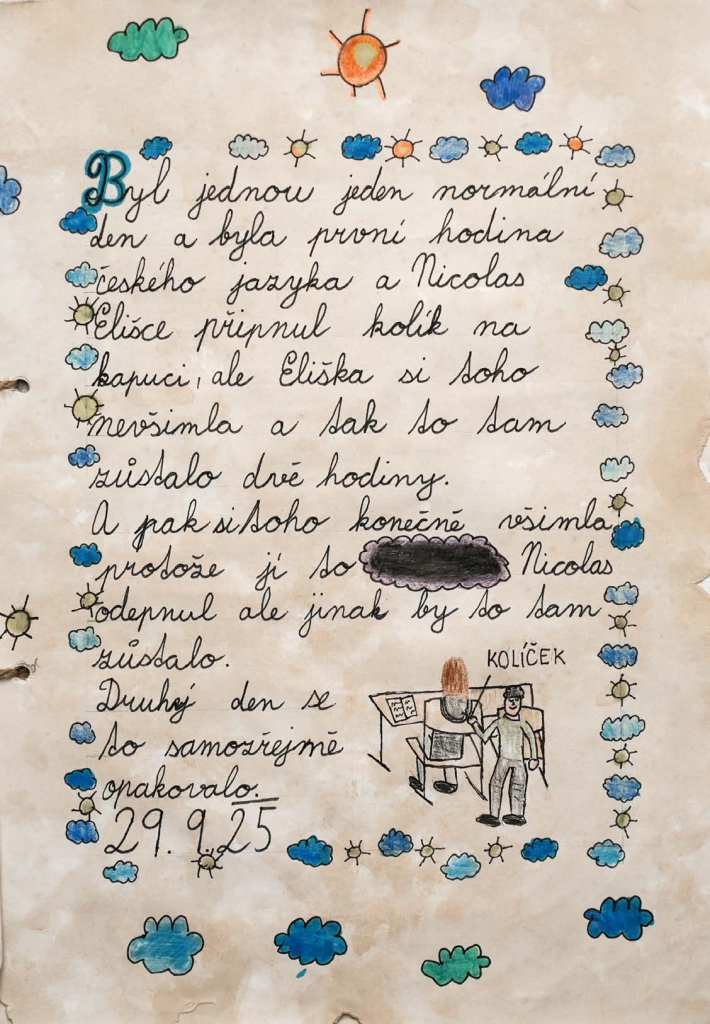 Byl jednou jeden normální
den a byla první hodina
českého jazyka a Nicolas
Elišce připnul kolík na
kapuci, ale Eliška si toho
nevšimla a tak to tam
zůstalo dvě hodiny.
A pak si toho konečně všimla
protože jí to Nicolas
odepnul ale jinak by to tam
zůstalo.
KOLÍČEK
Druhý den se
to samozřejmě
opakovalo.
29. 9. 25